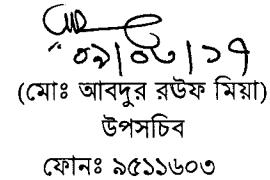 ০৯/০৮/১৭
(মোঃ আবদুর রউফ মিয়া)
উপসচিব
ফোনঃ ৯৫১১৬০৩